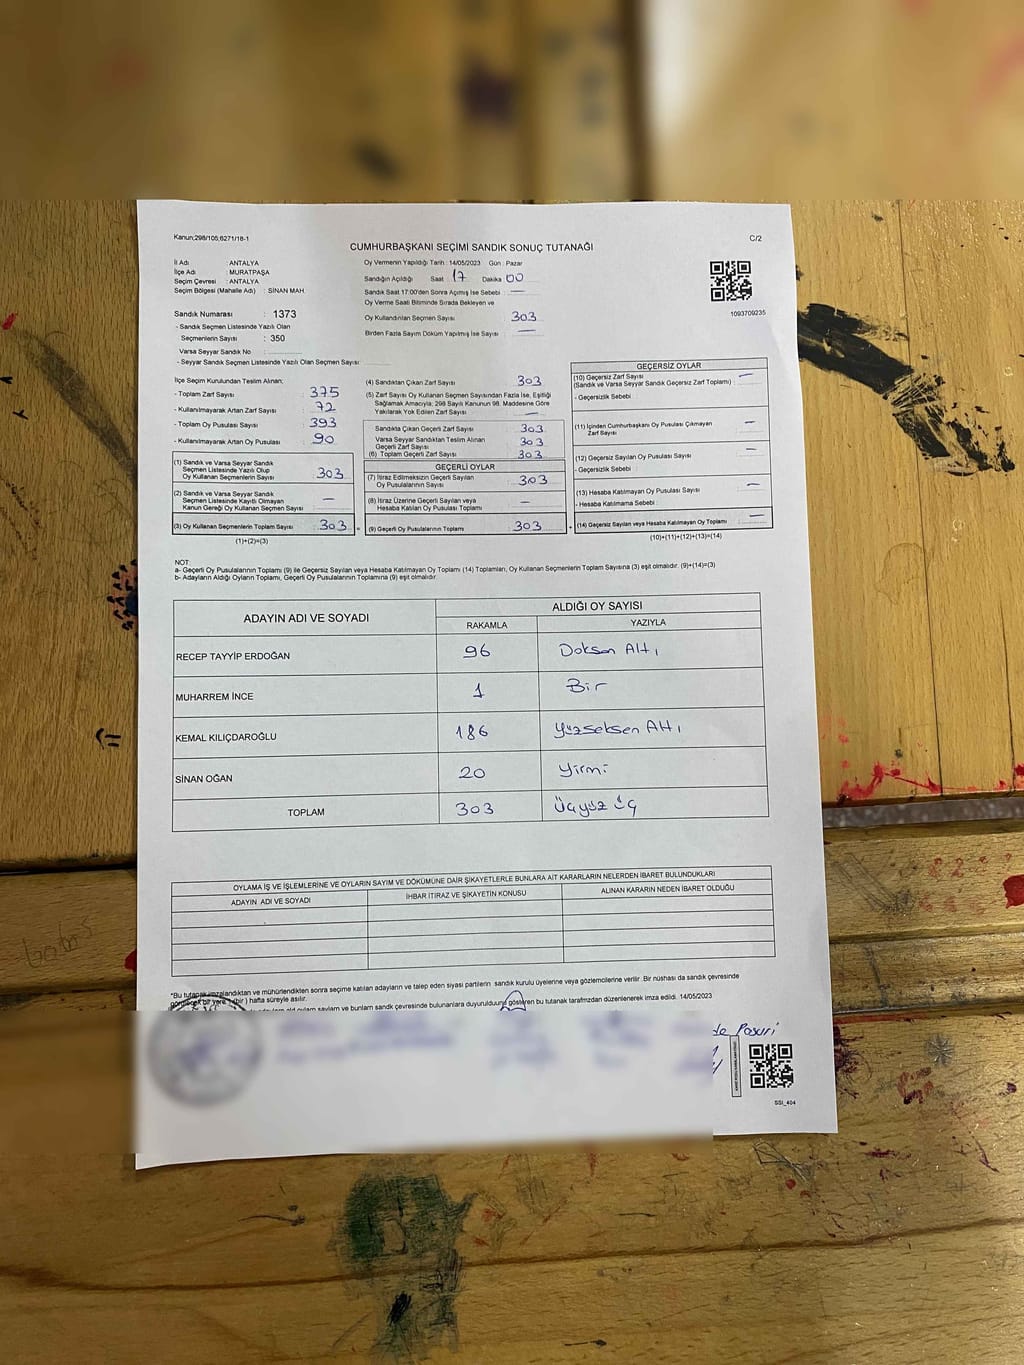 Kanun;298/105;6271/18-1
C/2
CUMHURBAŞKANI SEÇİMİ SANDIK SONUÇ TUTANAĞI
İl Adı : ANTALYA
İlçe Adı : MURATPAŞA
Seçim Çevresi : ANTALYA
Seçim Bölgesi (Mahalle Adı) : SİNAN MAH.
Sandık Numarası : 1373
- Sandık Seçmen Listesinde Yazılı Olan
Seçmenlerin Sayısı : 350
Varsa Seyyar Sandık No
- Seyyar Sandık Seçmen Listesinde Yazılı Olan Seçmen Sayısı
Oy Vermenin Yapıldığı Tarih : 14/05/2023 Gün : Pazar
Sandığın Açıldığı Saat 17 Dakika 00
Sandık Saat 17:00'den Sonra Açılmış İse Sebebi : —
Oy Verme Saati Bitiminde Sırada Bekleyen ve
Oy Kullandırılan Seçmen Sayısı 303
Birden Fazla Sayım Döküm Yapılmış İse Sayısı —
1093709235
İlçe Seçim Kurulundan Teslim Alınan;
- Toplam Zarf Sayısı 375
- Kullanılmayarak Artan Zarf Sayısı 72
- Toplam Oy Pusulası Sayısı 393
- Kullanılmayarak Artan Oy Pusulası 90
(1) Sandık ve Varsa Seyyar Sandık
Seçmen Listesinde Yazılı Olup
Oy Kullanan Seçmenlerin Sayısı 303
(2) Sandık ve Varsa Seyyar Sandık
Seçmen Listesinde Kayıtlı Olmayan
Kanun Gereği Oy Kullanan Seçmen Sayısı —
(3) Oy Kullanan Seçmenlerin Toplam Sayısı 303
(1)+(2)=(3)
(4) Sandıktan Çıkan Zarf Sayısı 303
(5) Zarf Sayısı Oy Kullanan Seçmen Sayısından Fazla İse, Eşitliği
Sağlamak Amacıyla; 298 Sayılı Kanunun 98. Maddesine Göre
Yakılarak Yok Edilen Zarf Sayısı —
Sandıkta Çıkan Geçerli Zarf Sayısı 303
Varsa Seyyar Sandıktan Teslim Alınan
Geçerli Zarf Sayısı 303
(6) Toplam Geçerli Zarf Sayısı 303
GEÇERLİ OYLAR
(7) İtiraz Edilmeksizin Geçerli Sayılan
Oy Pusulalarının Sayısı 303
(8) İtiraz Üzerine Geçerli Sayılan veya
Hesaba Katılan Oy Pusulası Toplamı —
(9) Geçerli Oy Pusulalarının Toplamı 303
GEÇERSİZ OYLAR
(10) Geçersiz Zarf Sayısı —
(Sandık ve Varsa Seyyar Sandık Geçersiz Zarf Toplamı) :
- Geçersizlik Sebebi
(11) İçinden Cumhurbaşkanı Oy Pusulası Çıkmayan
Zarf Sayısı —
(12) Geçersiz Sayılan Oy Pusulası Sayısı —
- Geçersizlik Sebebi
(13) Hesaba Katılmayan Oy Pusulası Sayısı —
- Hesaba Katılmama Sebebi :
(14) Geçersiz Sayılan veya Hesaba Katılmayan Oy Toplamı —
(10)+(11)+(12)+(13)=(14)
NOT:
a- Geçerli Oy Pusulalarının Toplamı (9) ile Geçersiz Sayılan veya Hesaba Katılmayan Oy Toplamı (14) Toplamları, Oy Kullanan Seçmenlerin Toplam Sayısına (3) eşit olmalıdır. (9)+(14)=(3)
b- Adayların Aldığı Oyların Toplamı, Geçerli Oy Pusulalarının Toplamına (9) eşit olmalıdır.
ADAYIN ADI VE SOYADI ALDIĞI OY SAYISI
RAKAMLA YAZIYLA
RECEP TAYYİP ERDOĞAN 96 Doksan Altı
MUHARREM İNCE 1 Bir
KEMAL KILIÇDAROĞLU 186 Yüzseksen Altı
SİNAN OĞAN 20 Yirmi
TOPLAM 303 Üçyüz üç
OYLAMA İŞ VE İŞLEMLERİNE VE OYLARIN SAYIM VE DÖKÜMÜNE DAİR ŞİKAYETLERLE BUNLARA AİT KARARLARIN NELERDEN İBARET BULUNDUKLARI
ADAYIN ADI VE SOYADI İHBAR İTİRAZ VE ŞİKAYETİN KONUSU ALINAN KARARIN NEDEN İBARET OLDUĞU
*Bu tutanak imzalandıktan ve mühürlendikten sonra seçime katılan adayların ve talep eden siyasi partilerin sandık kurulu üyelerine veya gözlemcilerine verilir. Bir nüshası da sandık çevresinde
görülecek bir yere 1 (bir) hafta süreyle asılır.
sayılam ve bunlam sandık çevresinde bulunanlara duyurulduğunu gösteren bu tutanak tarafımızdan düzenlenerek imza edildi. 14/05/2023
SSI_404